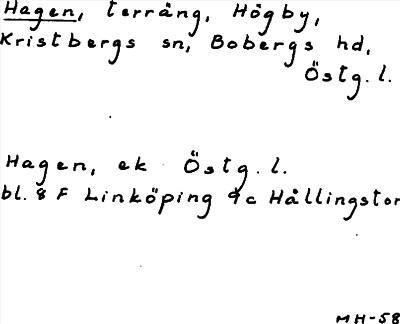 Hagen, terräng, Högby,
Kristbergs sn, Bobergs hd,
Östg.l.
Hagen, ek Östg.l.
bl. 8 F Linköping 9c Hållingstor
MH-58